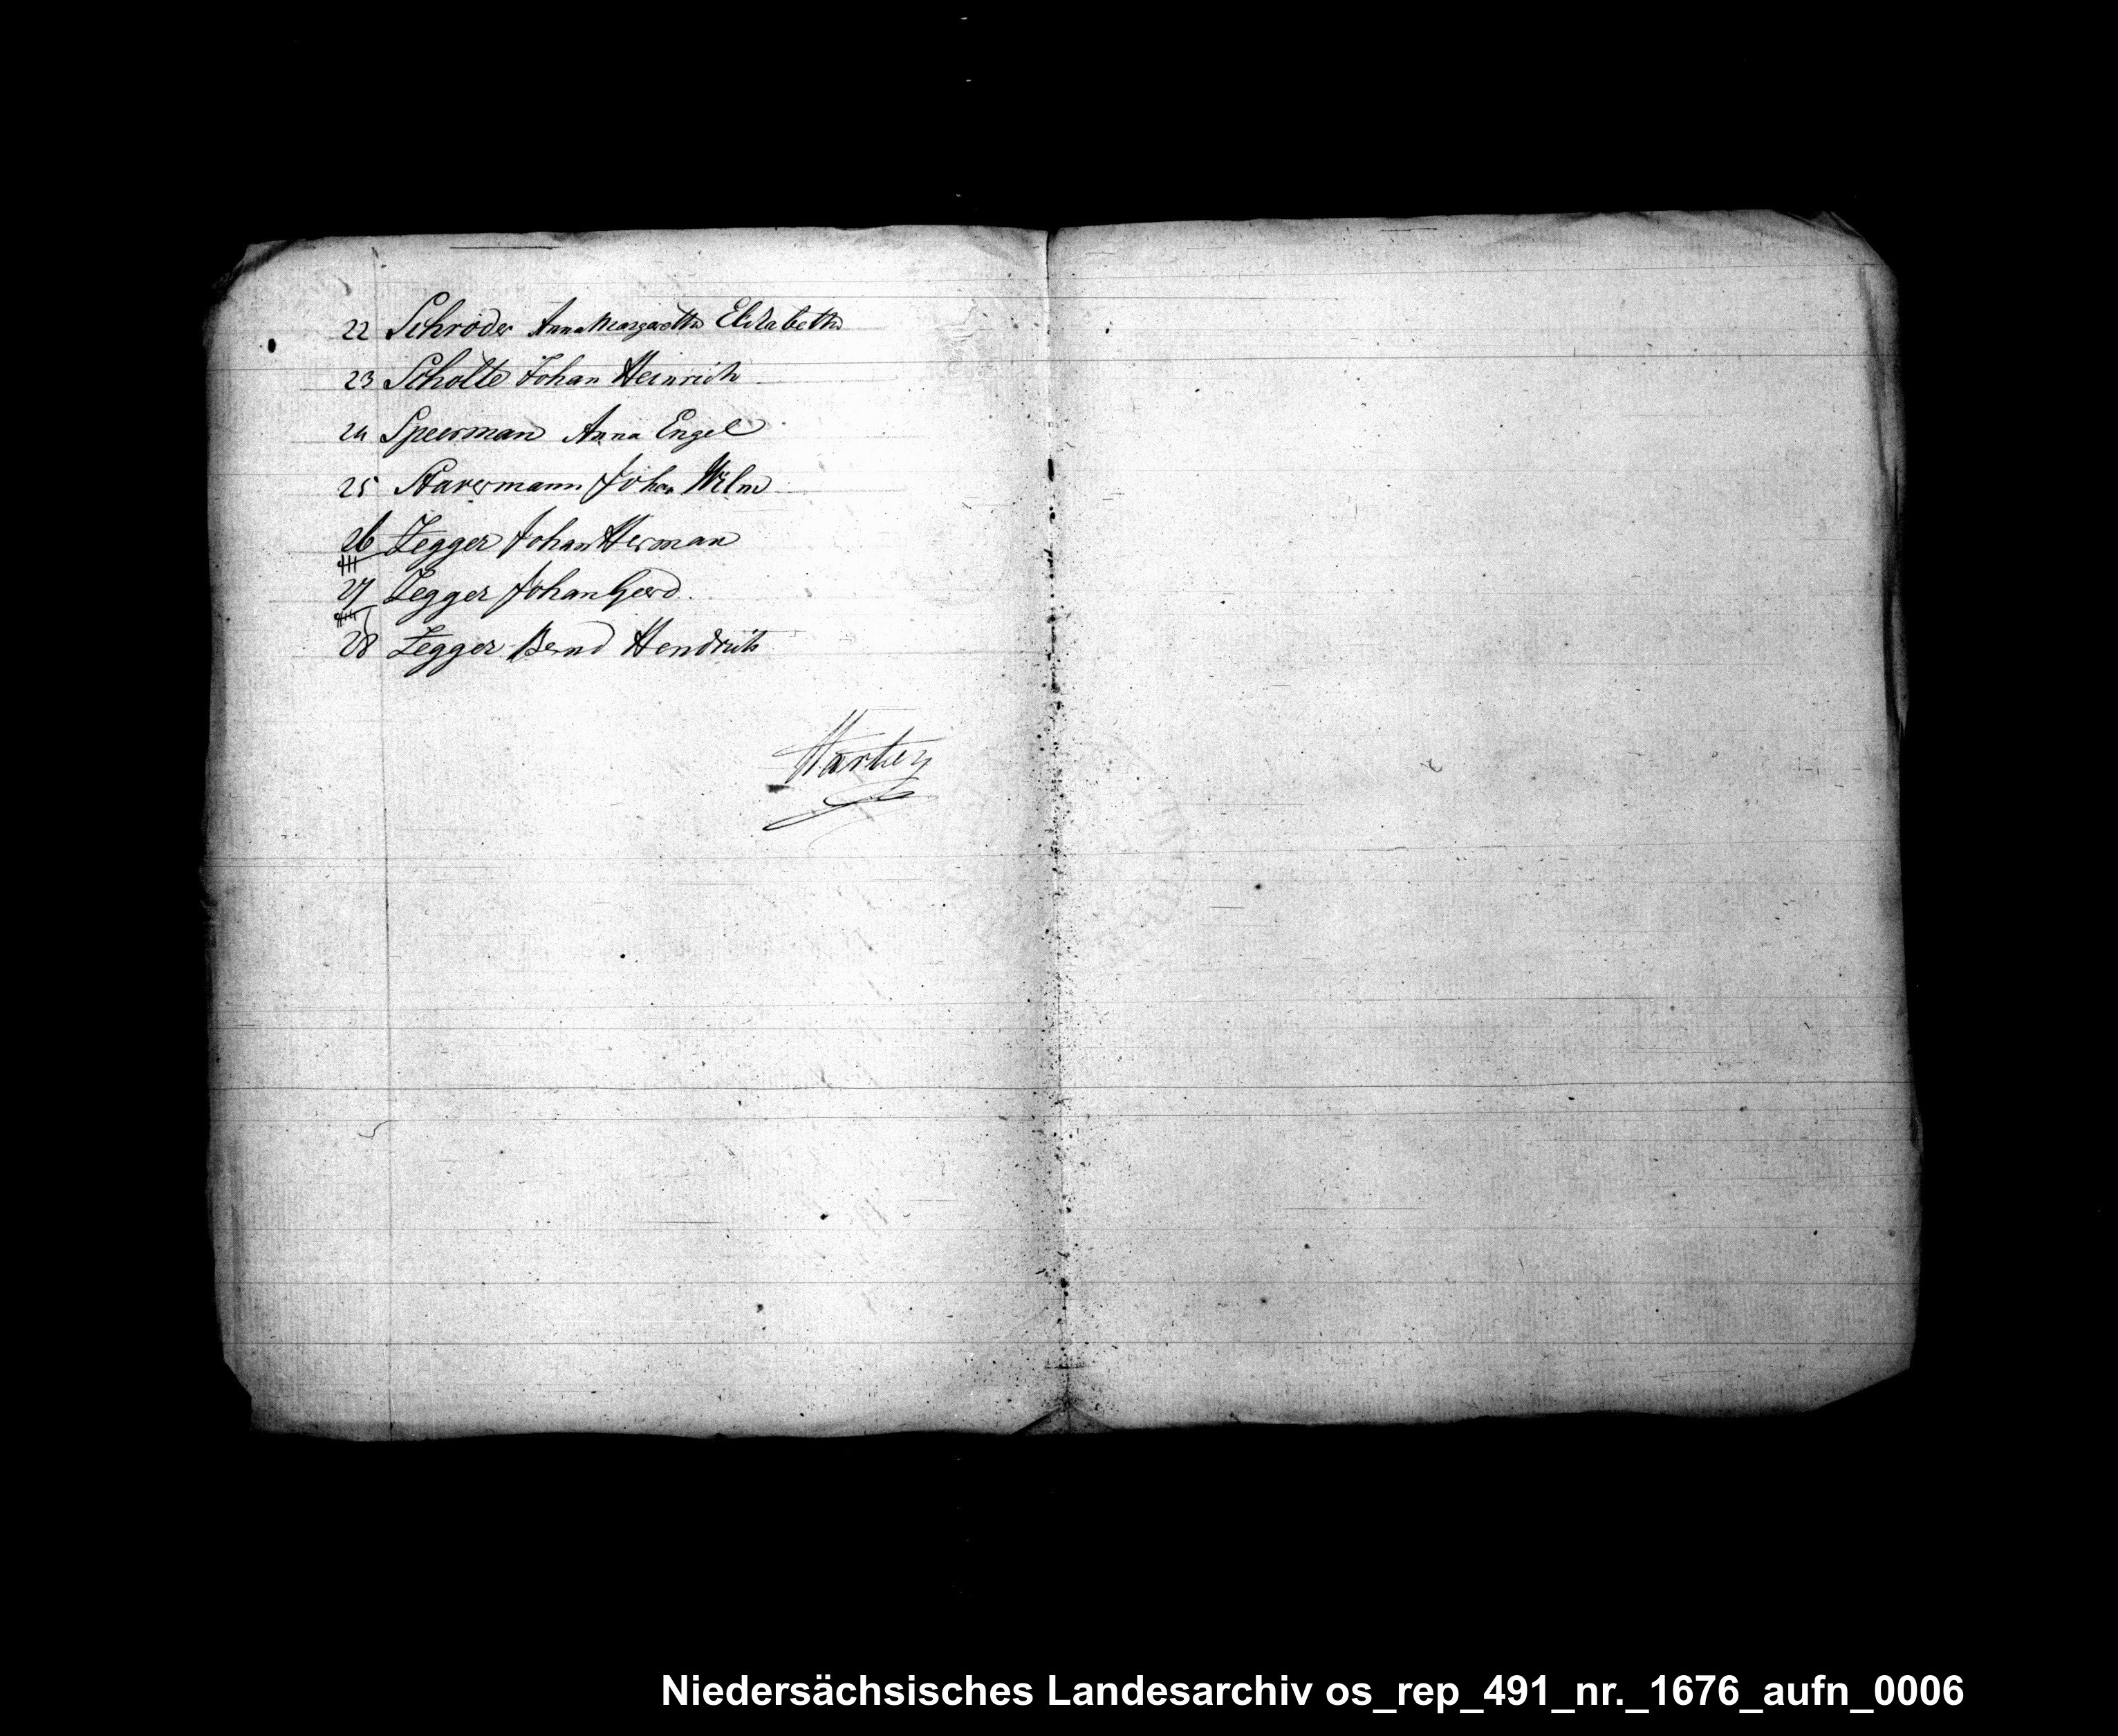 22 Schröder Anna Margaretha Elisabeth
23 Scholte Johan Heinrich
24 Speerman Anna Engel
25 Stavermann Johan Wilm
26 Zegger Johan Herman
27 Zegger Johan Gerd
28 Zegger Bernd Hendrich
Niedersächsisches Landesarchiv os_rep_491_nr._1676_aufn_0006